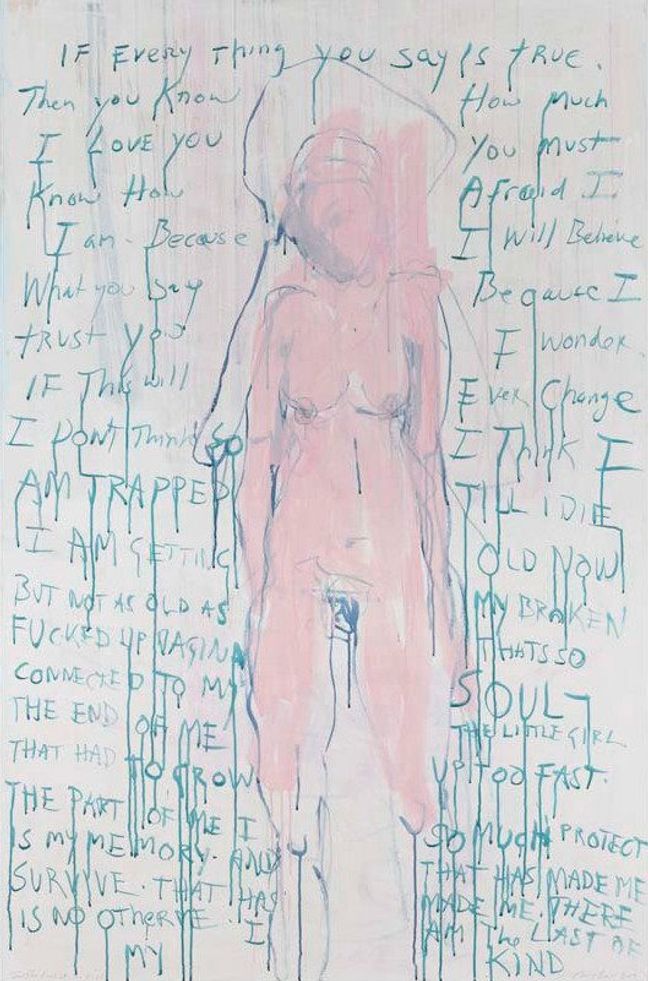 IF EVERY THING YOU SAY IS TRUE.
Then you Know How much
I LOVE YOU You must
Know How Afraid I
I am. Because I will Believe
What you say Because I
trust you I wonder.
IF This will Ever Change
I DONT Think SO I Think I
AM TRAPPED TILL I DIE
I AM GETTING OLD NOW
BUT NOT AS OLD AS MY BROKEN
FUCKED UP VAGINA THATS SO
CONNECTED TO MY SOUL -
THE END OF ME THE LITTLE GIRL
THAT HAD TO GROW UP TOO FAST.
THE PART OF ME I SO MUCH PROTECT
IS MY MEMORY. AND THAT HAS MADE ME
SURVIVE. THAT HAS MADE ME. THERE
IS NO OTHER ME. I AM The LAST OF
MY KIND